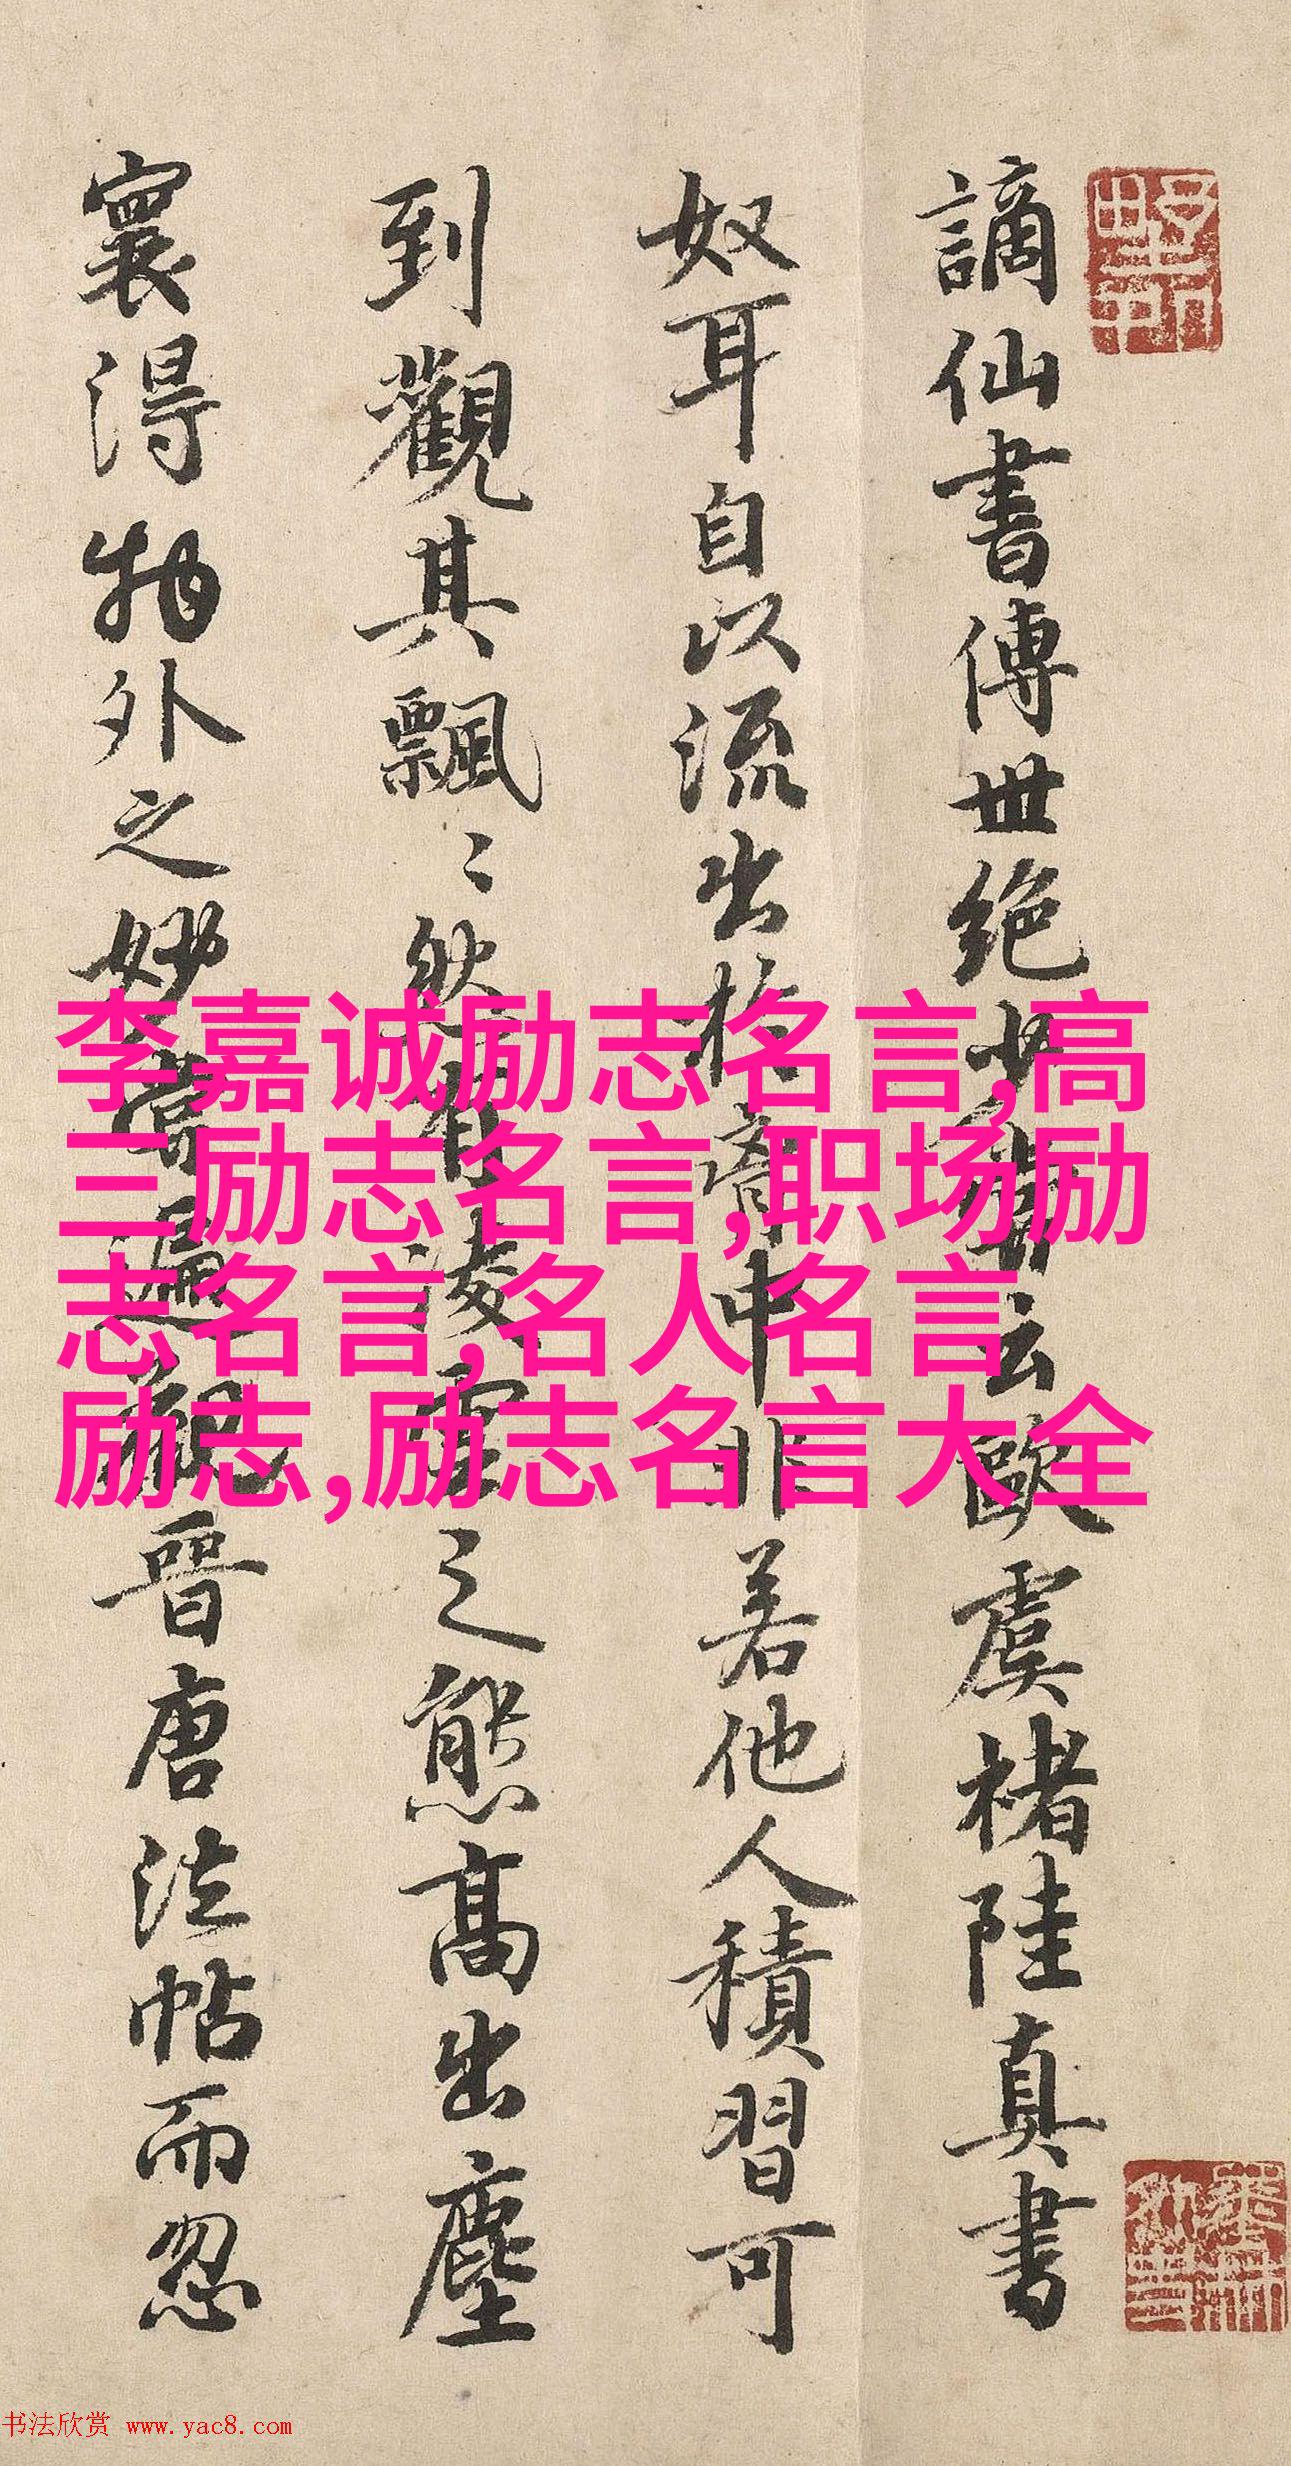 謫仙書傳世絕少嘗云歐虞褚陸真書
奴耳自以流出於胷中非若他人積習可
到觀其飄〻然有凌雲之態高出塵
寰得物外之妙嘗遍觀晉唐法帖而忽
李嘉诚励志名言,高
三励志名言,职场励
志名言,名人名言
励志,励志名言大全
书法欣赏 www.yac8.com